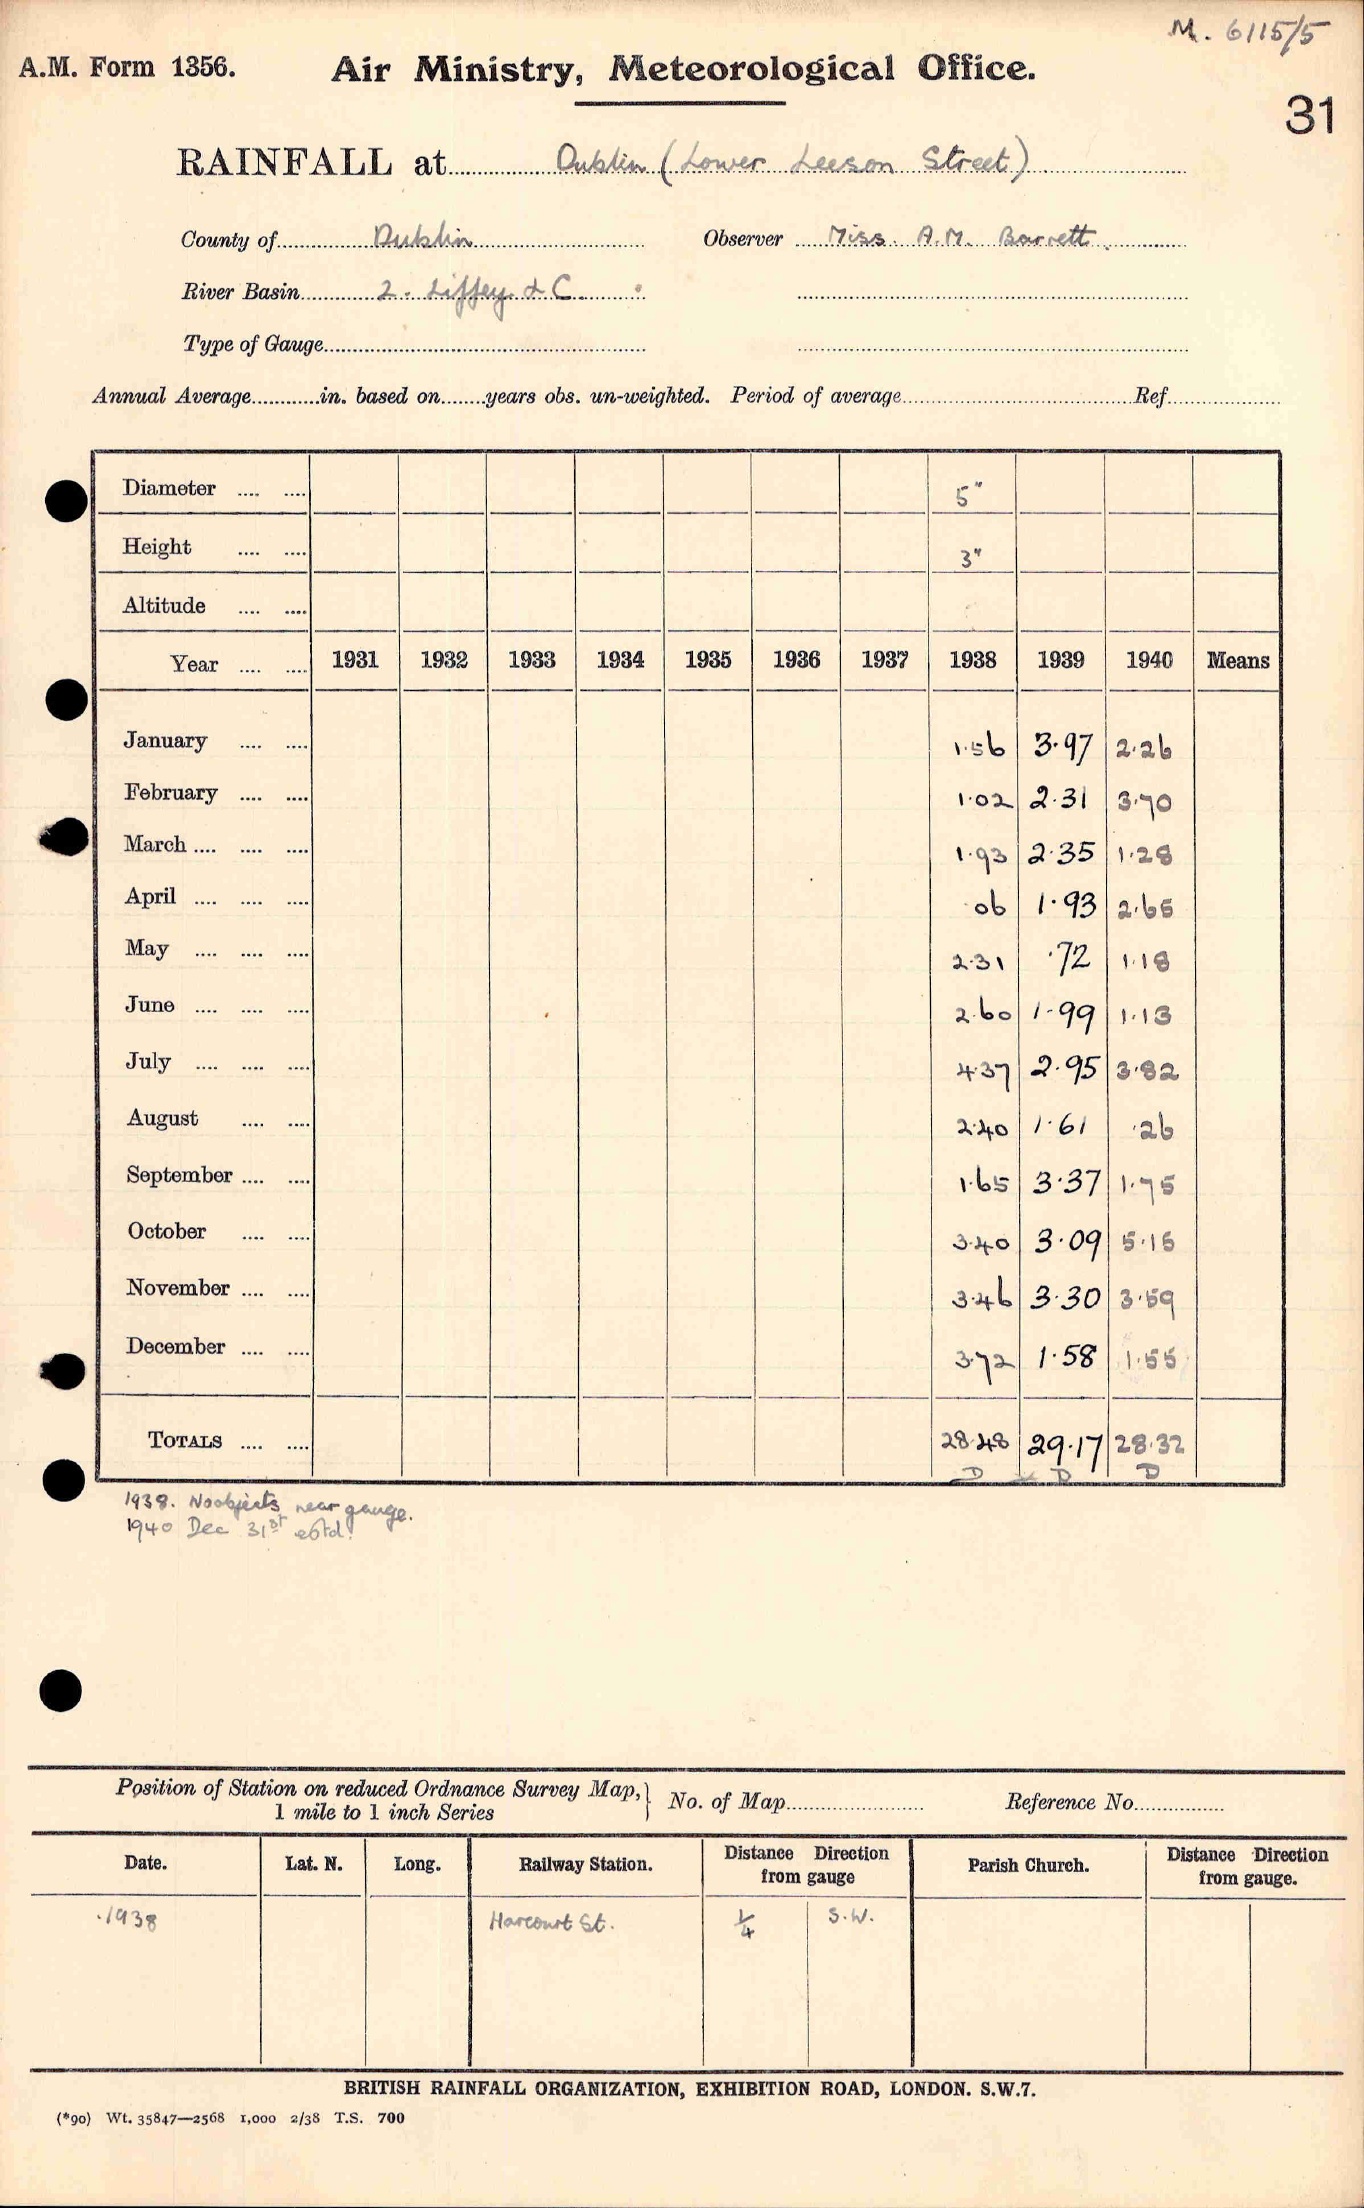 M. 6115/5
A.M. Form 1356. Air Ministry, Meteorological Office.
31
RAINFALL at Dublin (Lower Leeson Street)
County of Dublin Observer Miss A.M. Barrett.
River Basin 2. Liffey & C.
Type of Gauge
Annual Average in. based on years obs. un-weighted. Period of average Ref
Diameter 5"
Height 3"
Altitude
Year 1931 1932 1933 1934 1935 1936 1937 1938 1939 1940 Means
January 1.56 3.97 2.26
February 1.02 2.31 3.70
March 1.93 2.35 1.28
April .06 1.93 2.65
May 2.31 .72 1.18
June 2.60 1.99 1.13
July 4.37 2.95 3.82
August 2.40 1.61 .26
September 1.65 3.37 1.75
October 3.40 3.09 5.15
November 3.46 3.30 3.59
December 3.72 1.58 1.55
TOTALS 28.48 29.17 28.32
D D D
1938. No objects near gauge.
1940 Dec 31st estd.
Position of Station on reduced Ordnance Survey Map, } No. of Map Reference No.
1 mile to 1 inch Series
Date. Lat. N. Long. Railway Station. Distance Direction from gauge Parish Church. Distance Direction from gauge.
1938 Harcourt St. 1/4 S.W.
BRITISH RAINFALL ORGANIZATION, EXHIBITION ROAD, LONDON. S.W.7.
(*90) Wt. 35847—2568 1,000 2/38 T.S. 700